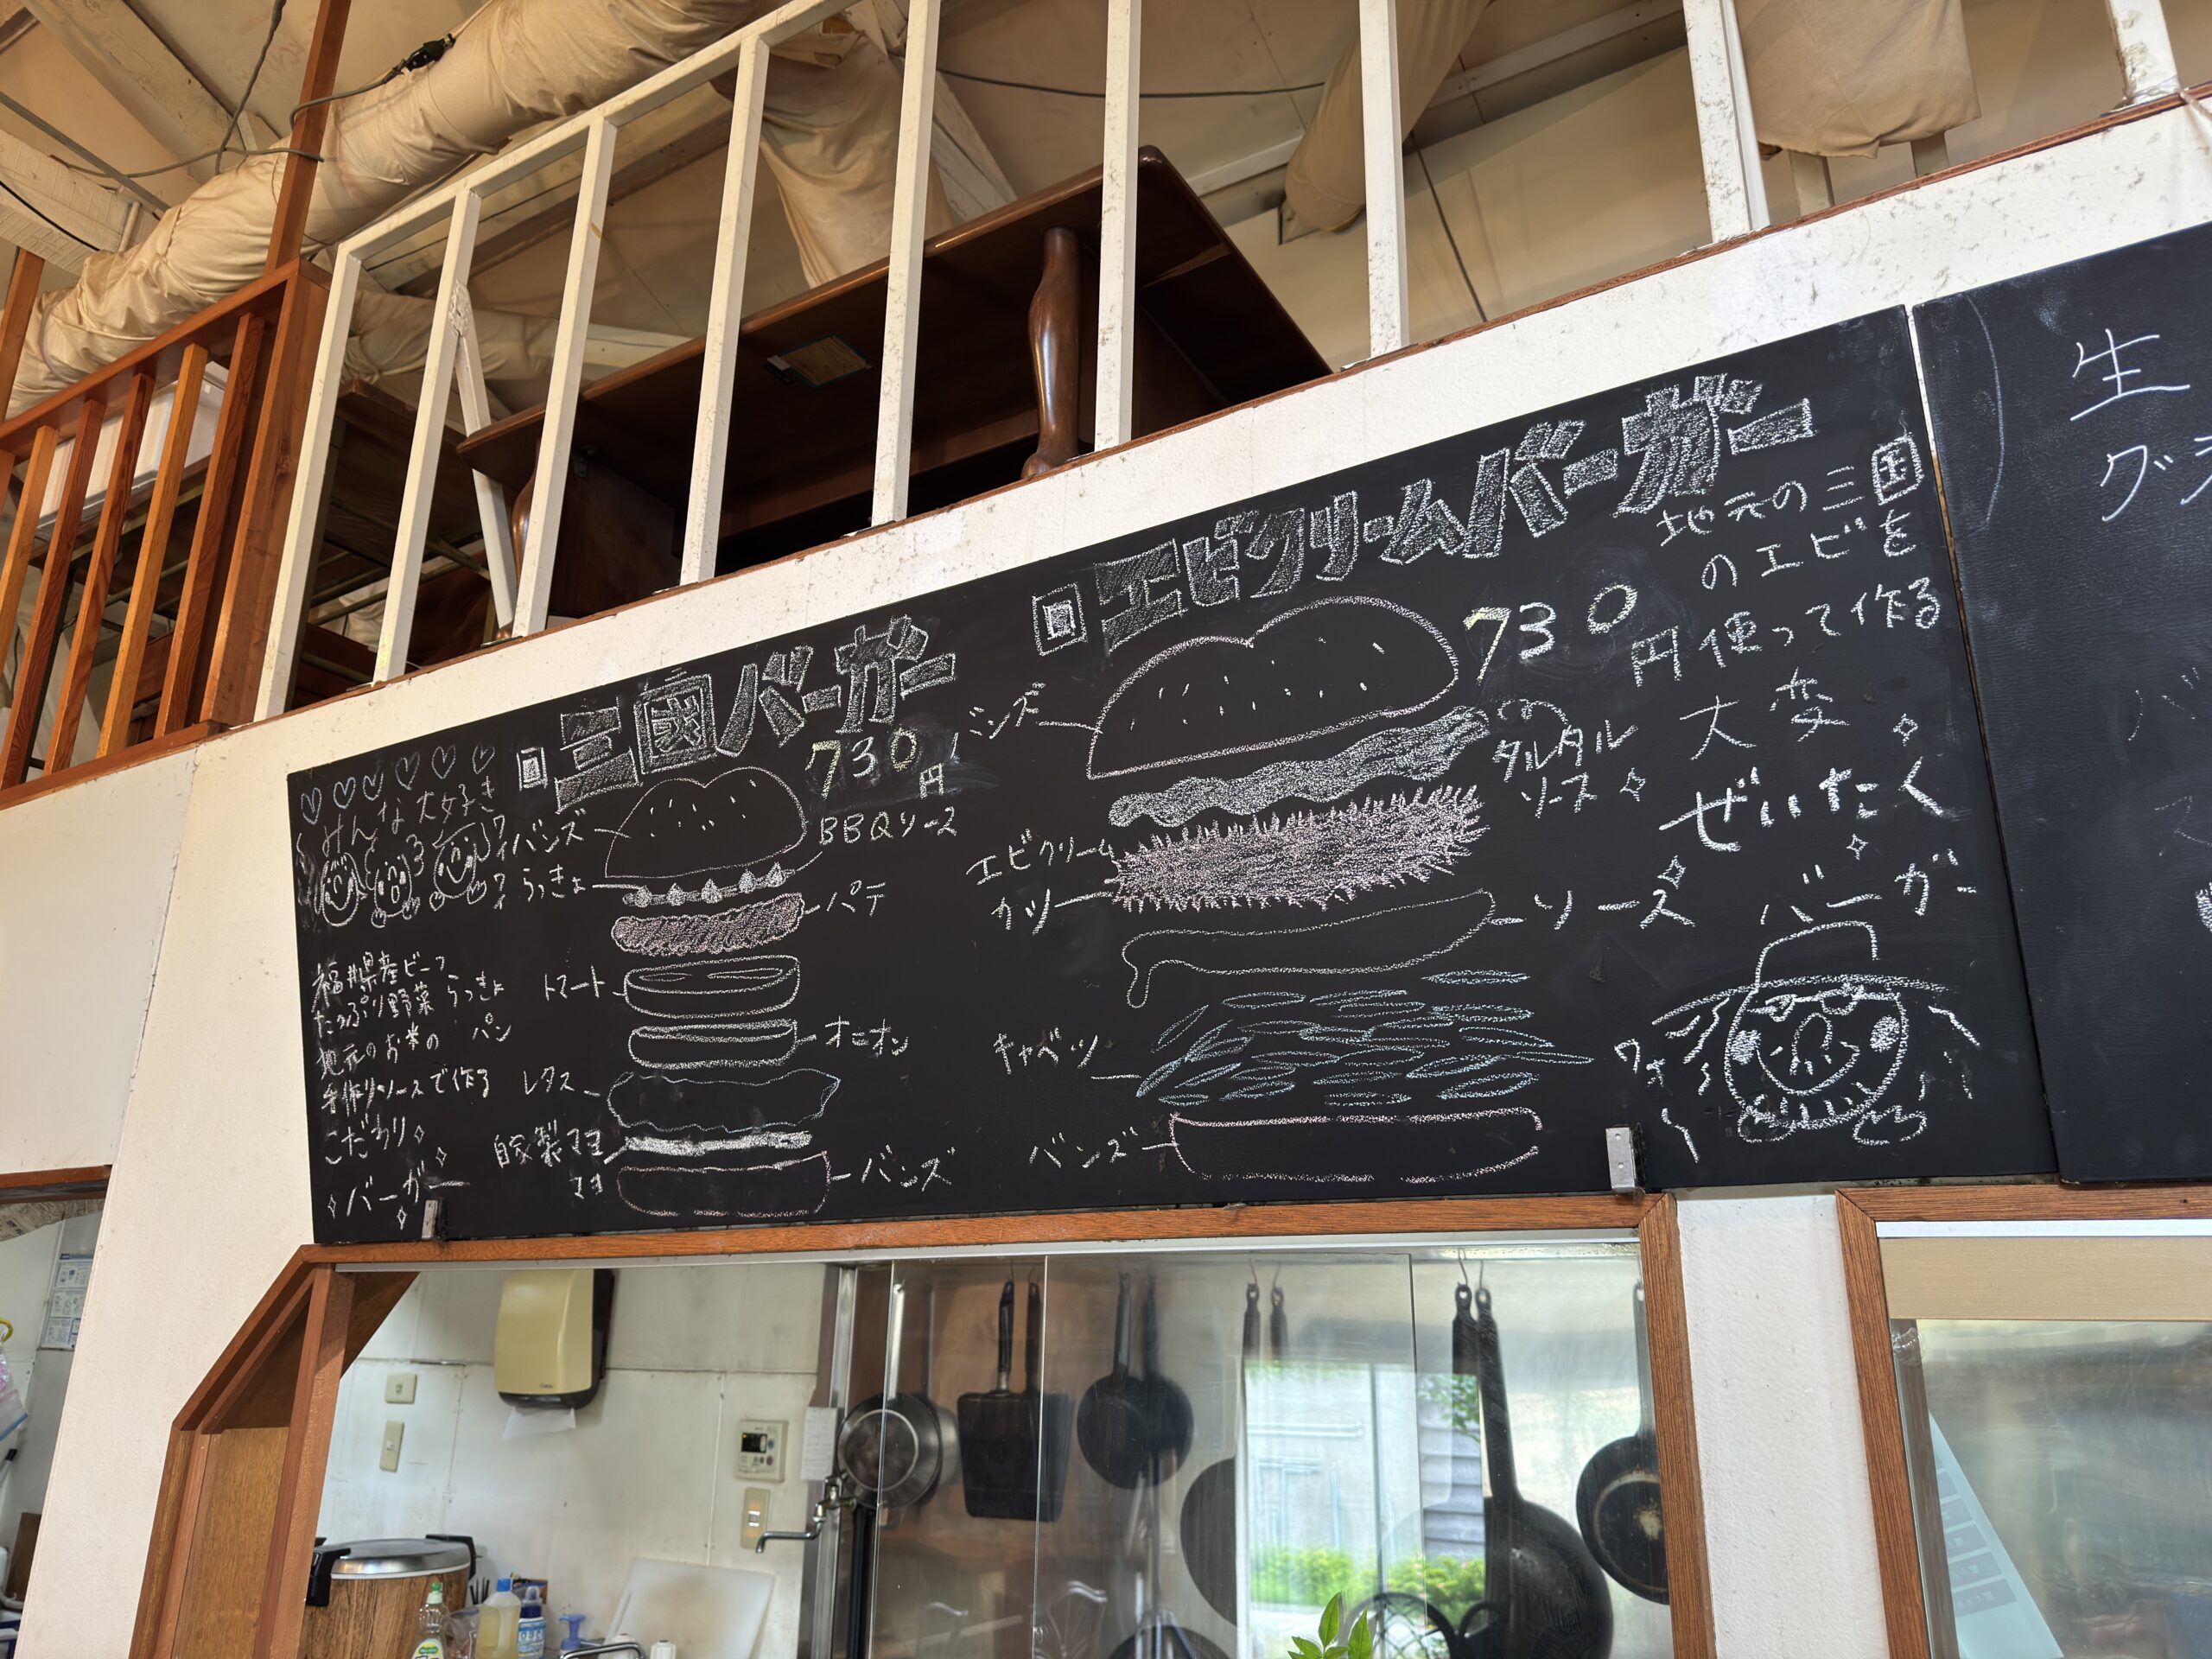 みんな大好き
三國バーガー
730
円
バンズ
BBQソース
らっきょ
パテ
トマト
オニオン
レタス
自家製マヨ
マヨ
バンズ
福井県産ビーフ
たっぷり野菜 らっきょ
地元のお米の パン
手作りソースで作る
こだわり
バーガー
エビクリームバーガー
730
円
バンズ
タルタル
ソース
エビクリーム
カツ
ソース
キャベツ
バンズ
地元の三国
のエビを
使って作る
大変
ぜいたく
バーガー
生